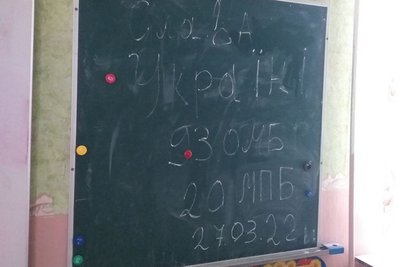 Слава
Україні
93 ОМБ
20 МПБ
27.03.22